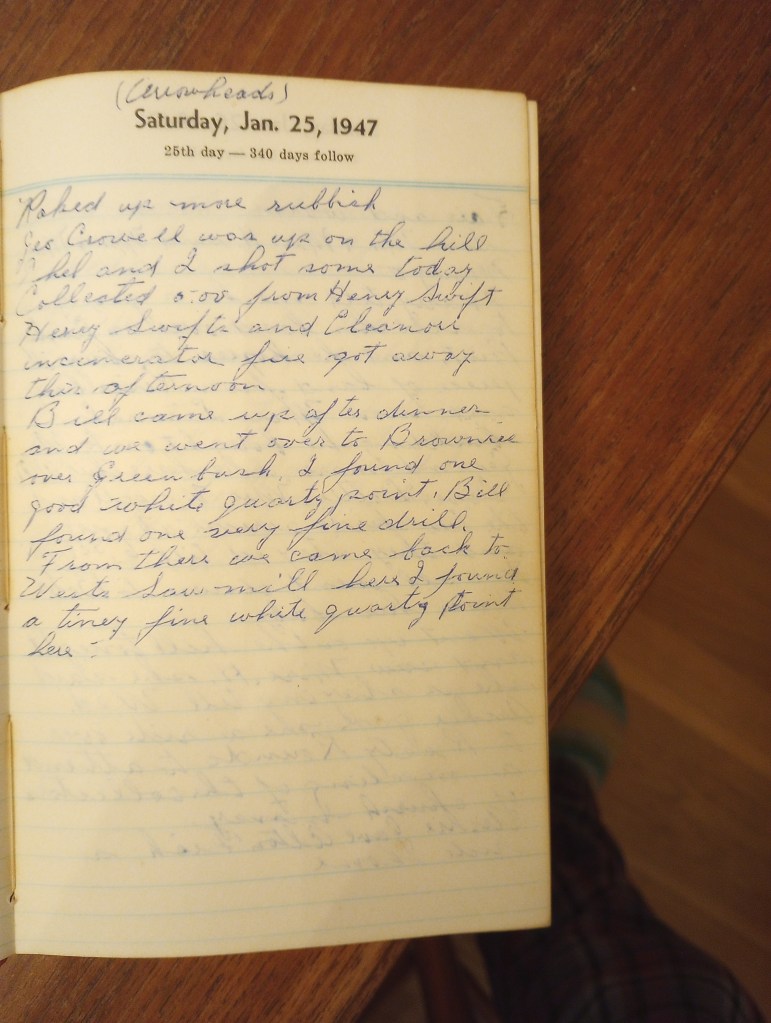 (arrowheads)
Saturday, Jan. 25, 1947
25th day — 340 days follow
Raked up more rubbish
Geo Crowell was up on the hill
Chel and I shot some today
Collected 5.00 from Henry Swift
Henry Swifts and Eleanor
incinerator fire got away
this afternoon
Bill came up after dinner
and we went over to
over Greenbush. I found one
good white quartz point. Bill
found one very fine drill.
From there we came back to
Wests Saw mill here I found
a tiney fine white quartz point
here -